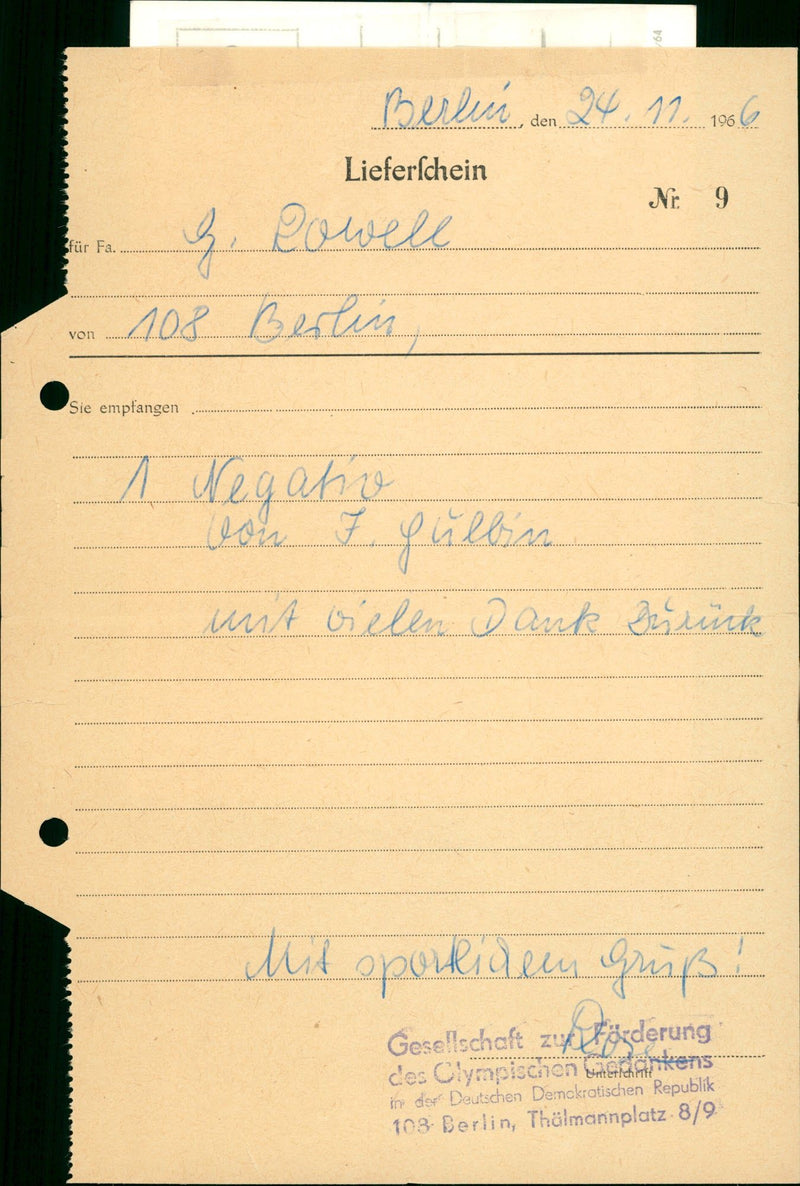 Berlin, den 24. 11. 1966
Lieferschein
Nr. 9
für Fa. G. Rowell
von 108 Berlin,
Sie empfangen
1 Negativ
von F. Gülbin
mit vielen Dank zurück
Mit sportlichem Gruß!
Gesellschaft zur Förderung
des Olympischen Gedankens
Unterschrift
in der Deutschen Demokratischen Republik
108 Berlin, Thälmannplatz 8/9